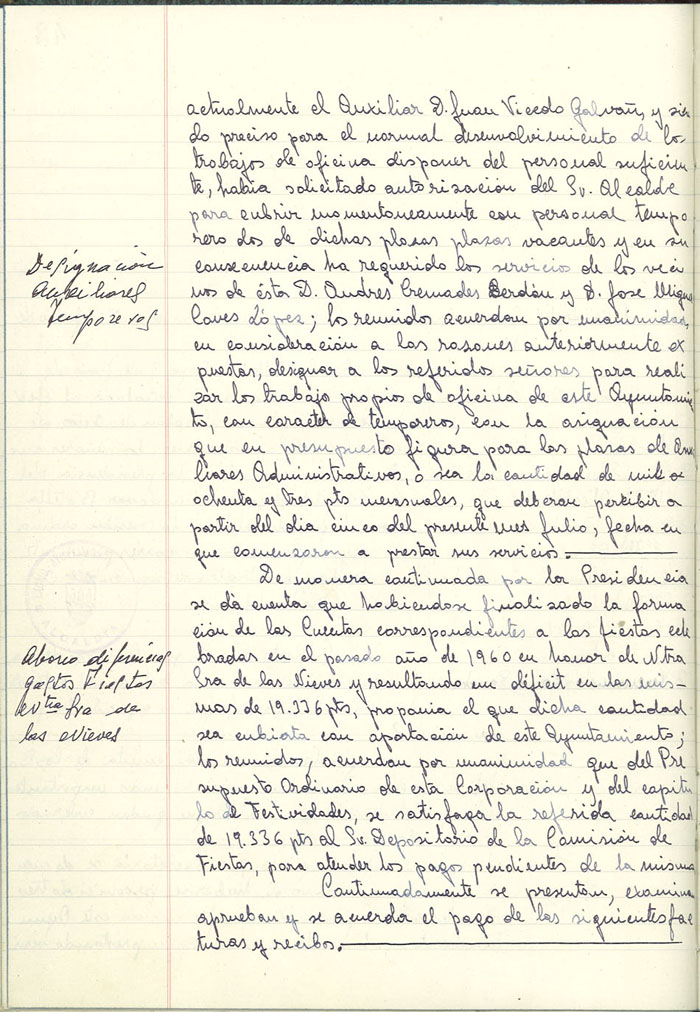 actualmente el Auxiliar D. Juan Vicedo Galvañ, y sien
do preciso para el normal desenvolvimiento de los
trabajos de oficina disponer del personal suficien
te, había solicitado autorización del Sr. Alcalde
para cubrir momentaneamente con personal tempo
rero dos de dichas plazas plazas vacantes y en su
consecuencia ha requerido los servicios de los veci
nos de ésta D. Andres Cremades Berdón y D. Jose Migue
Caves López; los reunidos acuerdan por unanimidad,
en consideración a las razones anteriormente ex
puestas, designar a los referidos señores para reali
zar los trabajo propios de oficina de este Ayuntamie
to, con caracter de temporeros, con la asignación
que en presupuesto figura para las plazas de Auxi
liares Administrativos, o sea la cantidad de mil o
ochenta y tres pts mensuales, que deberan percibir a
partir del dia cinco del presente mes Julio, fecha en
que comenzaron a prestar sus servicios.
De manera continuada por la Presidencia
se dá cuenta que habiendose finalizado la forma
ción de las Cuentas correspondientes a las fiestas cele
bradas en el pasado año de 1960 en honor de Ntra
Sra de las Nieves y resultando un déficit en las mis-
mas de 19.336 pts, proponia el que dicha cantidad
sea cubierta con aportación de este Ayuntamiento;
los reunidos, acuerdan por unanimidad que del Pre
supuesto Ordinario de esta Corporación y del capitu
lo de Festividades, se satisfaga la referida cantidad
de 19.336 pts al Sr. Depositario de la Comisión de
Fiestas, para atender los pagos pendientes de la misma
Continuadamente se presentan, examina
aprueban y se acuerda el pago de las siguientes fac
turas y recibos.
Designación
Auxiliares
temporeros
Abono diferencias
gastos Fiestas
Ntra Sra de
las Nieves